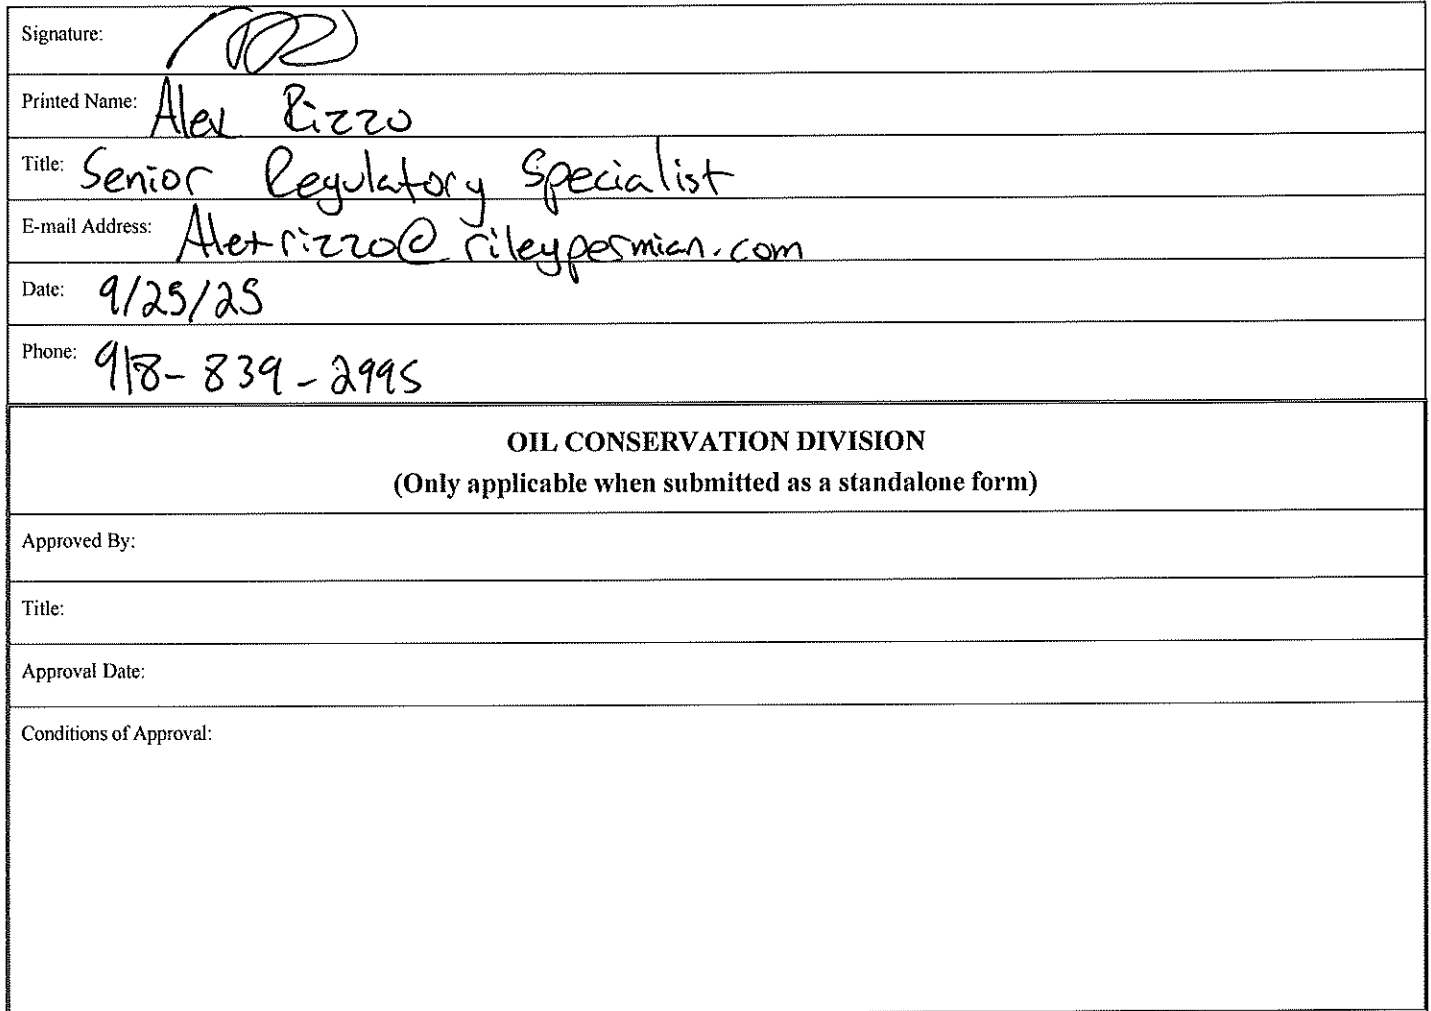 Signature:
Printed Name: Alex Rizzo
Title: Senior Regulatory Specialist
E-mail Address: Alexrizzo@rileypermian.com
Date: 9/25/25
Phone: 918-839-2995
OIL CONSERVATION DIVISION
(Only applicable when submitted as a standalone form)
Approved By:
Title:
Approval Date:
Conditions of Approval: